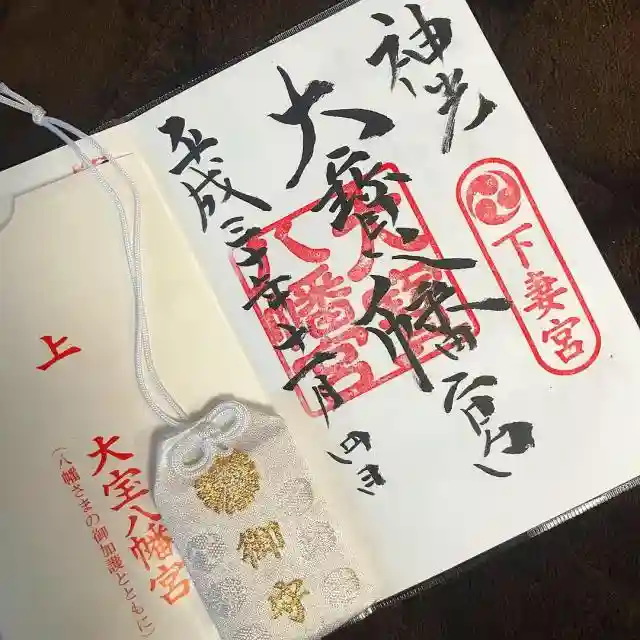 下妻宮
神光
大寳八幡宮
大寳
八幡宮
平成三十年
上
大宝八幡宮
(八幡さまの御加護とともに)
御守